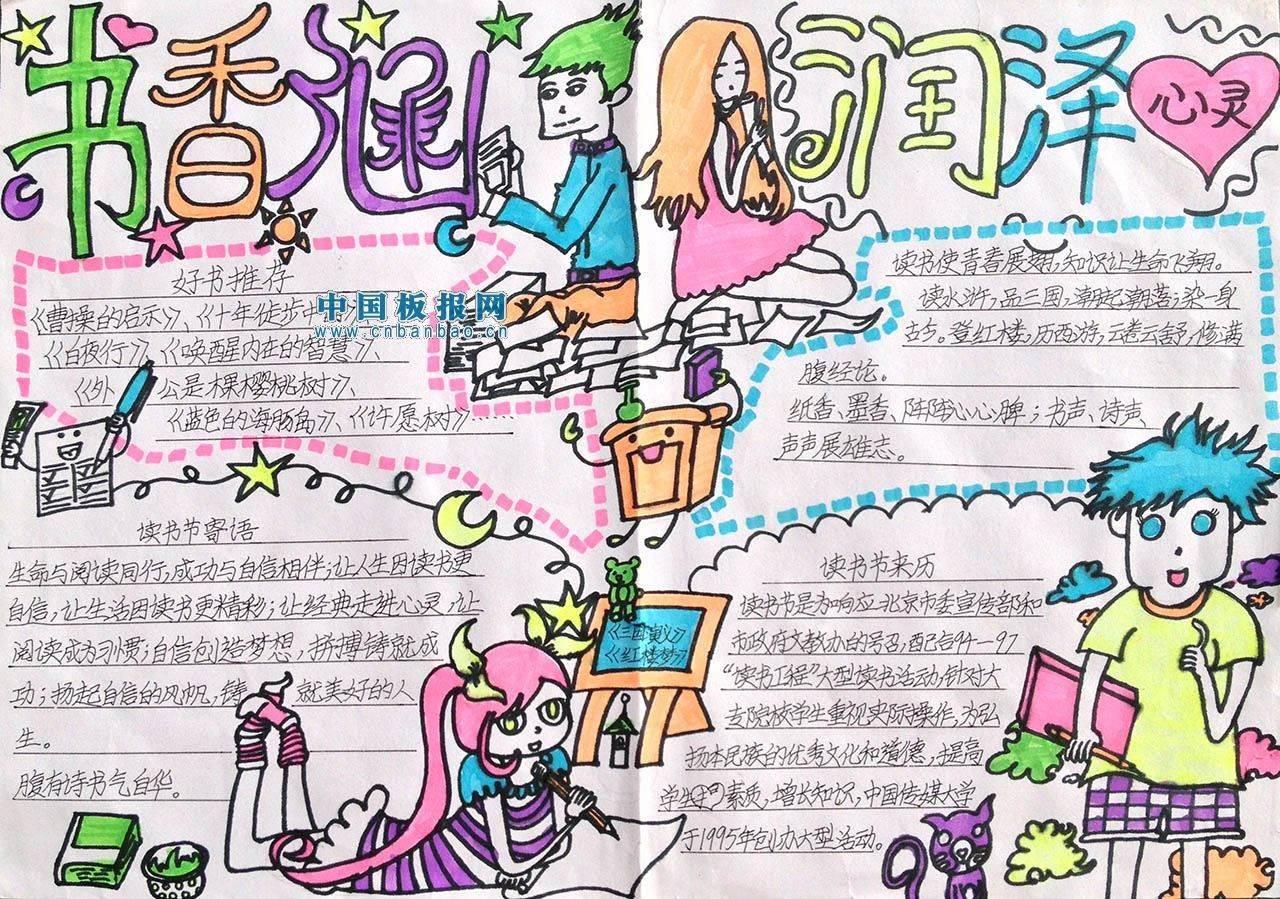 书香
润泽
心灵
中国板报网
www.cnbanbao.cn
好书推荐
《曹操的启示》、《十年徒步中
《白夜行》、《唤醒内在的智慧》、
《外公是棵樱桃树》、
《蓝色的海豚岛》、《许愿树》……
读书使青春展翅,知识让生命飞翔。
读水浒,品三国,潮起潮落;染一身
。登红楼,历西游,云卷云舒,修满
腹经论。
纸香、墨香、阵阵沁心脾;书声、诗声、
声声展雄志。
读书节寄语
生命与阅读同行,成功与自信相伴;让人生因读书更
自信,让生活因读书更精彩;让经典走进心灵,让
阅读成为习惯;自信创造梦想,拼搏铸就成
功;扬起自信的风帆,铸就美好的人
生。
腹有诗书气自华。
《三国演义》
《红楼梦》
读书节来历
读书节是为响应北京市委宣传部和
市政府文教办的号召,配合94—97
“读书工程”大型读书活动,针对大
专院校学生重视实际操作,为弘
扬本民族的优秀文化和道德,提高
学生学习素质,增长知识,中国传媒大学
于1995年创办大型活动。